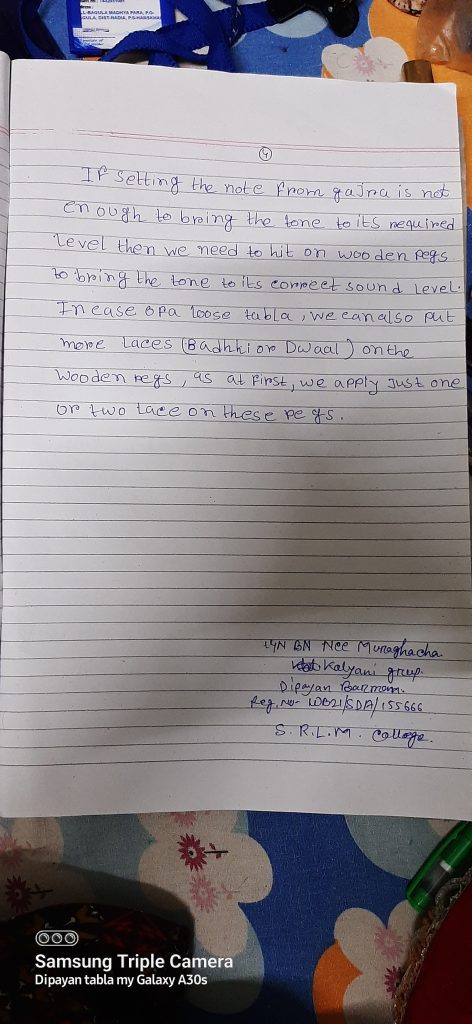 L-BAGULA MADHYA PARA, P.O-
GULA, DIST-NADIA, P.S-HANSKHALI
4
If setting the note from gajra is not
enough to bring the tone to its required
level then we need to hit on wooden pegs
to bring the tone to its correct sound level.
In case opa loose tabla, we can also put
more laces (Badhhi or Dwaal) on the
wooden pegs, as at first, we apply just one
or two lace on these pegs.
BN Ncc Muraghacha
Kalyani grup.
Dipayan Barmom.
Reg. No- WB21/SDA/155666
S.R.L.M. College.
Samsung Triple Camera
Dipayan tabla my Galaxy A30s